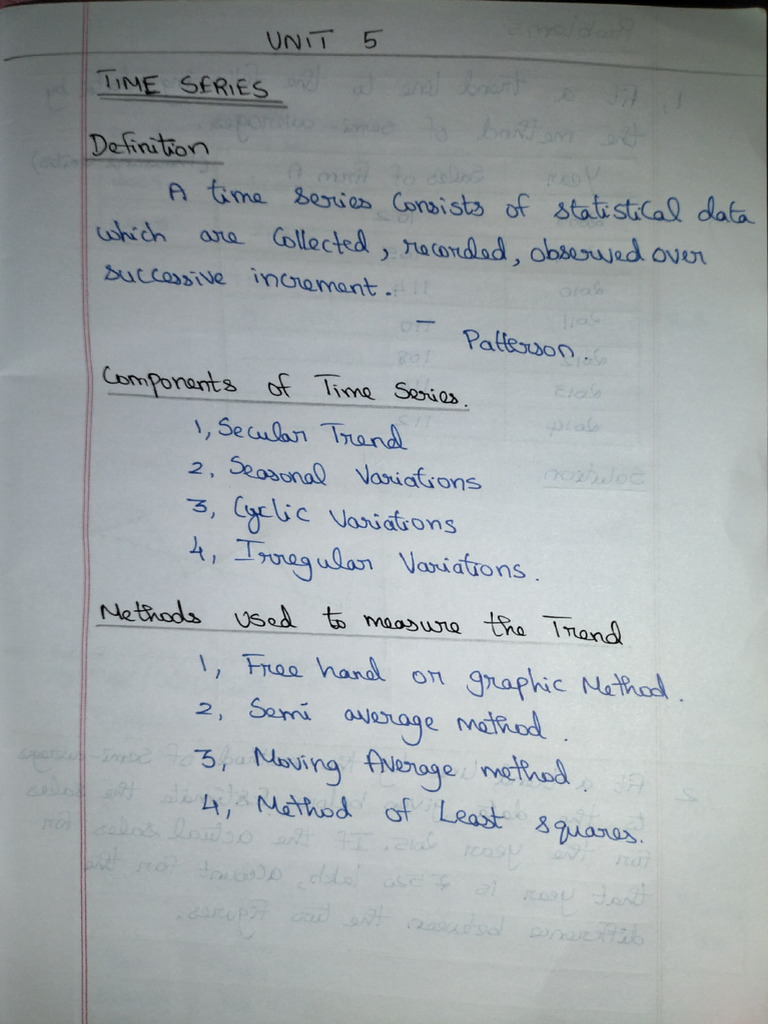 UNIT 5
TIME SERIES
Definition
A time series consists of statistical data
which are collected, recorded, observed over
successive increment.
- Patterson.
Components of Time Series.
1, Secular Trend
2. Seasonal Variations
3, Cyclic Variations
4, Irregular Variations.
Methods used to measure the Trend
1, Free hand or graphic Method.
2. Semi average method.
3, Moving Average method.
4, Method of Least squares.